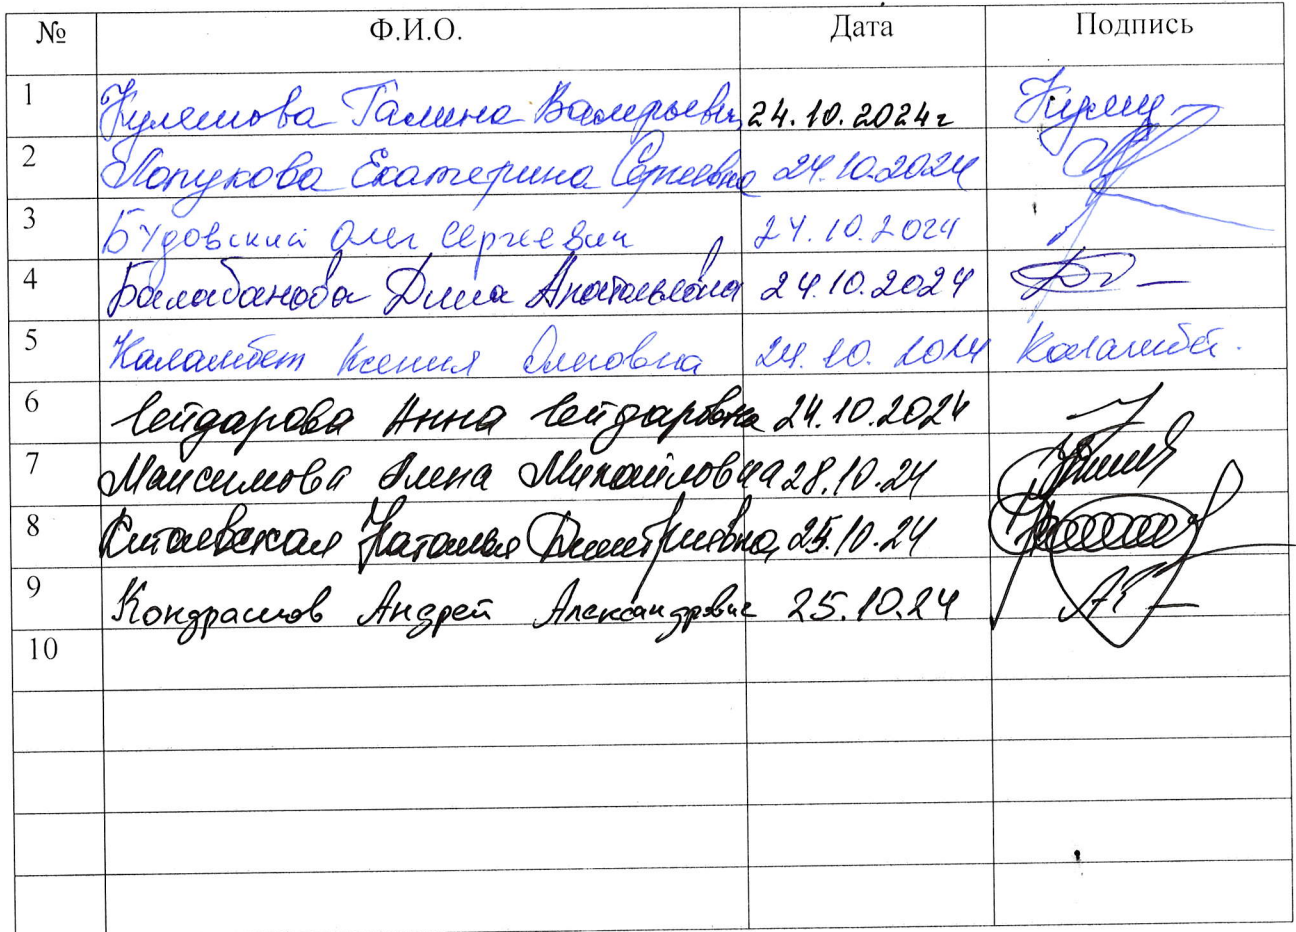 № Ф.И.О. Дата Подпись
1 Кулешова Галина Валерьевна 24.10.2024г Кулеш
2 Лопукова Екатерина Сергеевна 24.10.2024
3 Будовский Олег Сергеевич 24.10.2024
4 Балабанова Дина Анатольевна 24.10.2024
5 Каламбет Ксения Олеговна 24.10.2024 Каламбет.
6 Сейдарова Анна Сейдаровна 24.10.2024
7 Максимова Елена Михайловна 28.10.24
8 Наталья Дмитриевна 25.10.24
9 Кондрашов Андрей Александрович 25.10.24
10